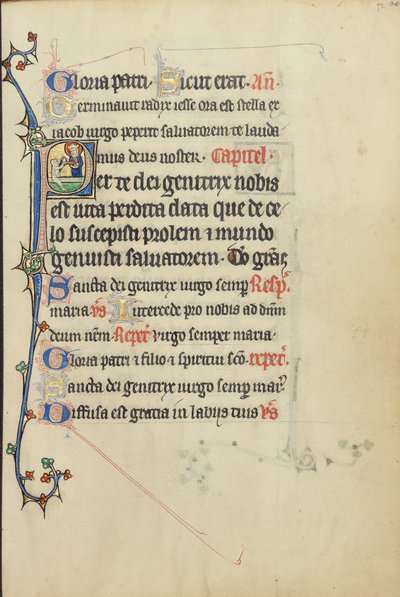 Gloria patri. Sicut erat. An̄.
Germinauit radyx iesse orta est stella ex
iacob uirgo peperit saluatorem te lauda-
mus deus noster. Capitel.
Per te dei genitryx nobis
est uita perdita data que de ce-
lo suscepisti prolem ⁊ mundo
genuisti saluatorem. Do graſ
Sancta dei genitryx uirgo semp̄ Resp̄.
maria. v̄s Intercede pro nobis ad dn̄m
deum nr̄m. Repet̄ uirgo semper maria.
Gloria patri ⁊ filio ⁊ spiritui sc̄o. repet̄.
Sancta dei genitryx uirgo semp̄ mar̄.
Diffusa est gratia in labijs tuis v̄s